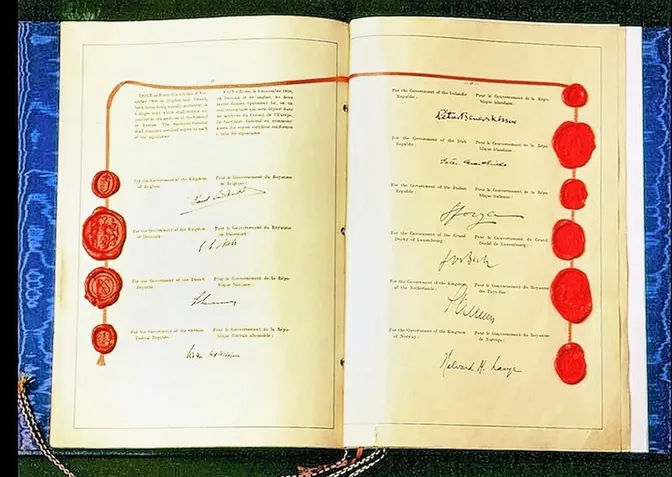 DONE at Rome this 4th day of No-
vember 1950 in English and French,
both texts being equally authentic, in
a single copy which shall remain de-
posited in the archives of the Council
of Europe. The Secretary-General
shall transmit certified copies to each
of the signatories.
FAIT à Rome, le 4 novembre 1950,
en français et en anglais, les deux
textes faisant également foi, en un
seul exemplaire qui sera déposé dans
les archives du Conseil de l'Europe.
Le Secrétaire Général en communi-
quera des copies certifiées conformes
à tous les signataires.
For the Government of the Kingdom
of Belgium:
Pour le Gouvernement du Royaume
de Belgique:
For the Government of the Kingdom
of Denmark:
Pour le Gouvernement du Royaume
de Danemark:
For the Government of the French
Republic:
Pour le Gouvernement de la Répu-
blique française:
For the Government of the German
Federal Republic:
Pour le Gouvernement de la Répu-
blique fédérale allemande:
For the Government of the Icelandic
Republic:
Pour le Gouvernement de la Répu-
blique islandaise:
For the Government of the Irish
Republic:
Pour le Gouvernement de la Répu-
blique irlandaise:
For the Government of the Italian
Republic:
Pour le Gouvernement de la Répu-
blique italienne:
Sforza
For the Government of the Grand
Duchy of Luxembourg:
Pour le Gouvernement du Grand
Duché de Luxembourg:
Jos Bech
For the Government of the Kingdom
of the Netherlands:
Pour le Gouvernement du Royaume
des Pays-Bas:
For the Government of the Kingdom
of Norway:
Pour le Gouvernement du Royaume
de Norvège:
Halvard M. Lange